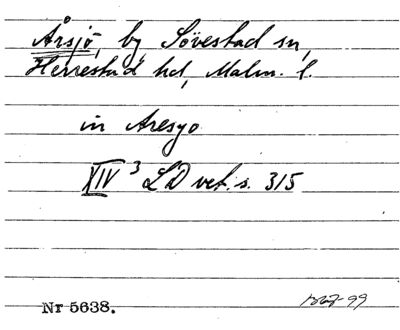 Årsjö, by, Sövestad sn,
Herrestad hd, Malm. l.
in Aresyo
XIV 3 LD vet. s. 315
Nr 5638.
99